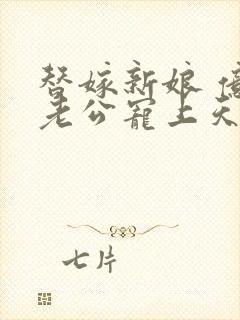 替嫁新娘 億
老公寵上天
七片